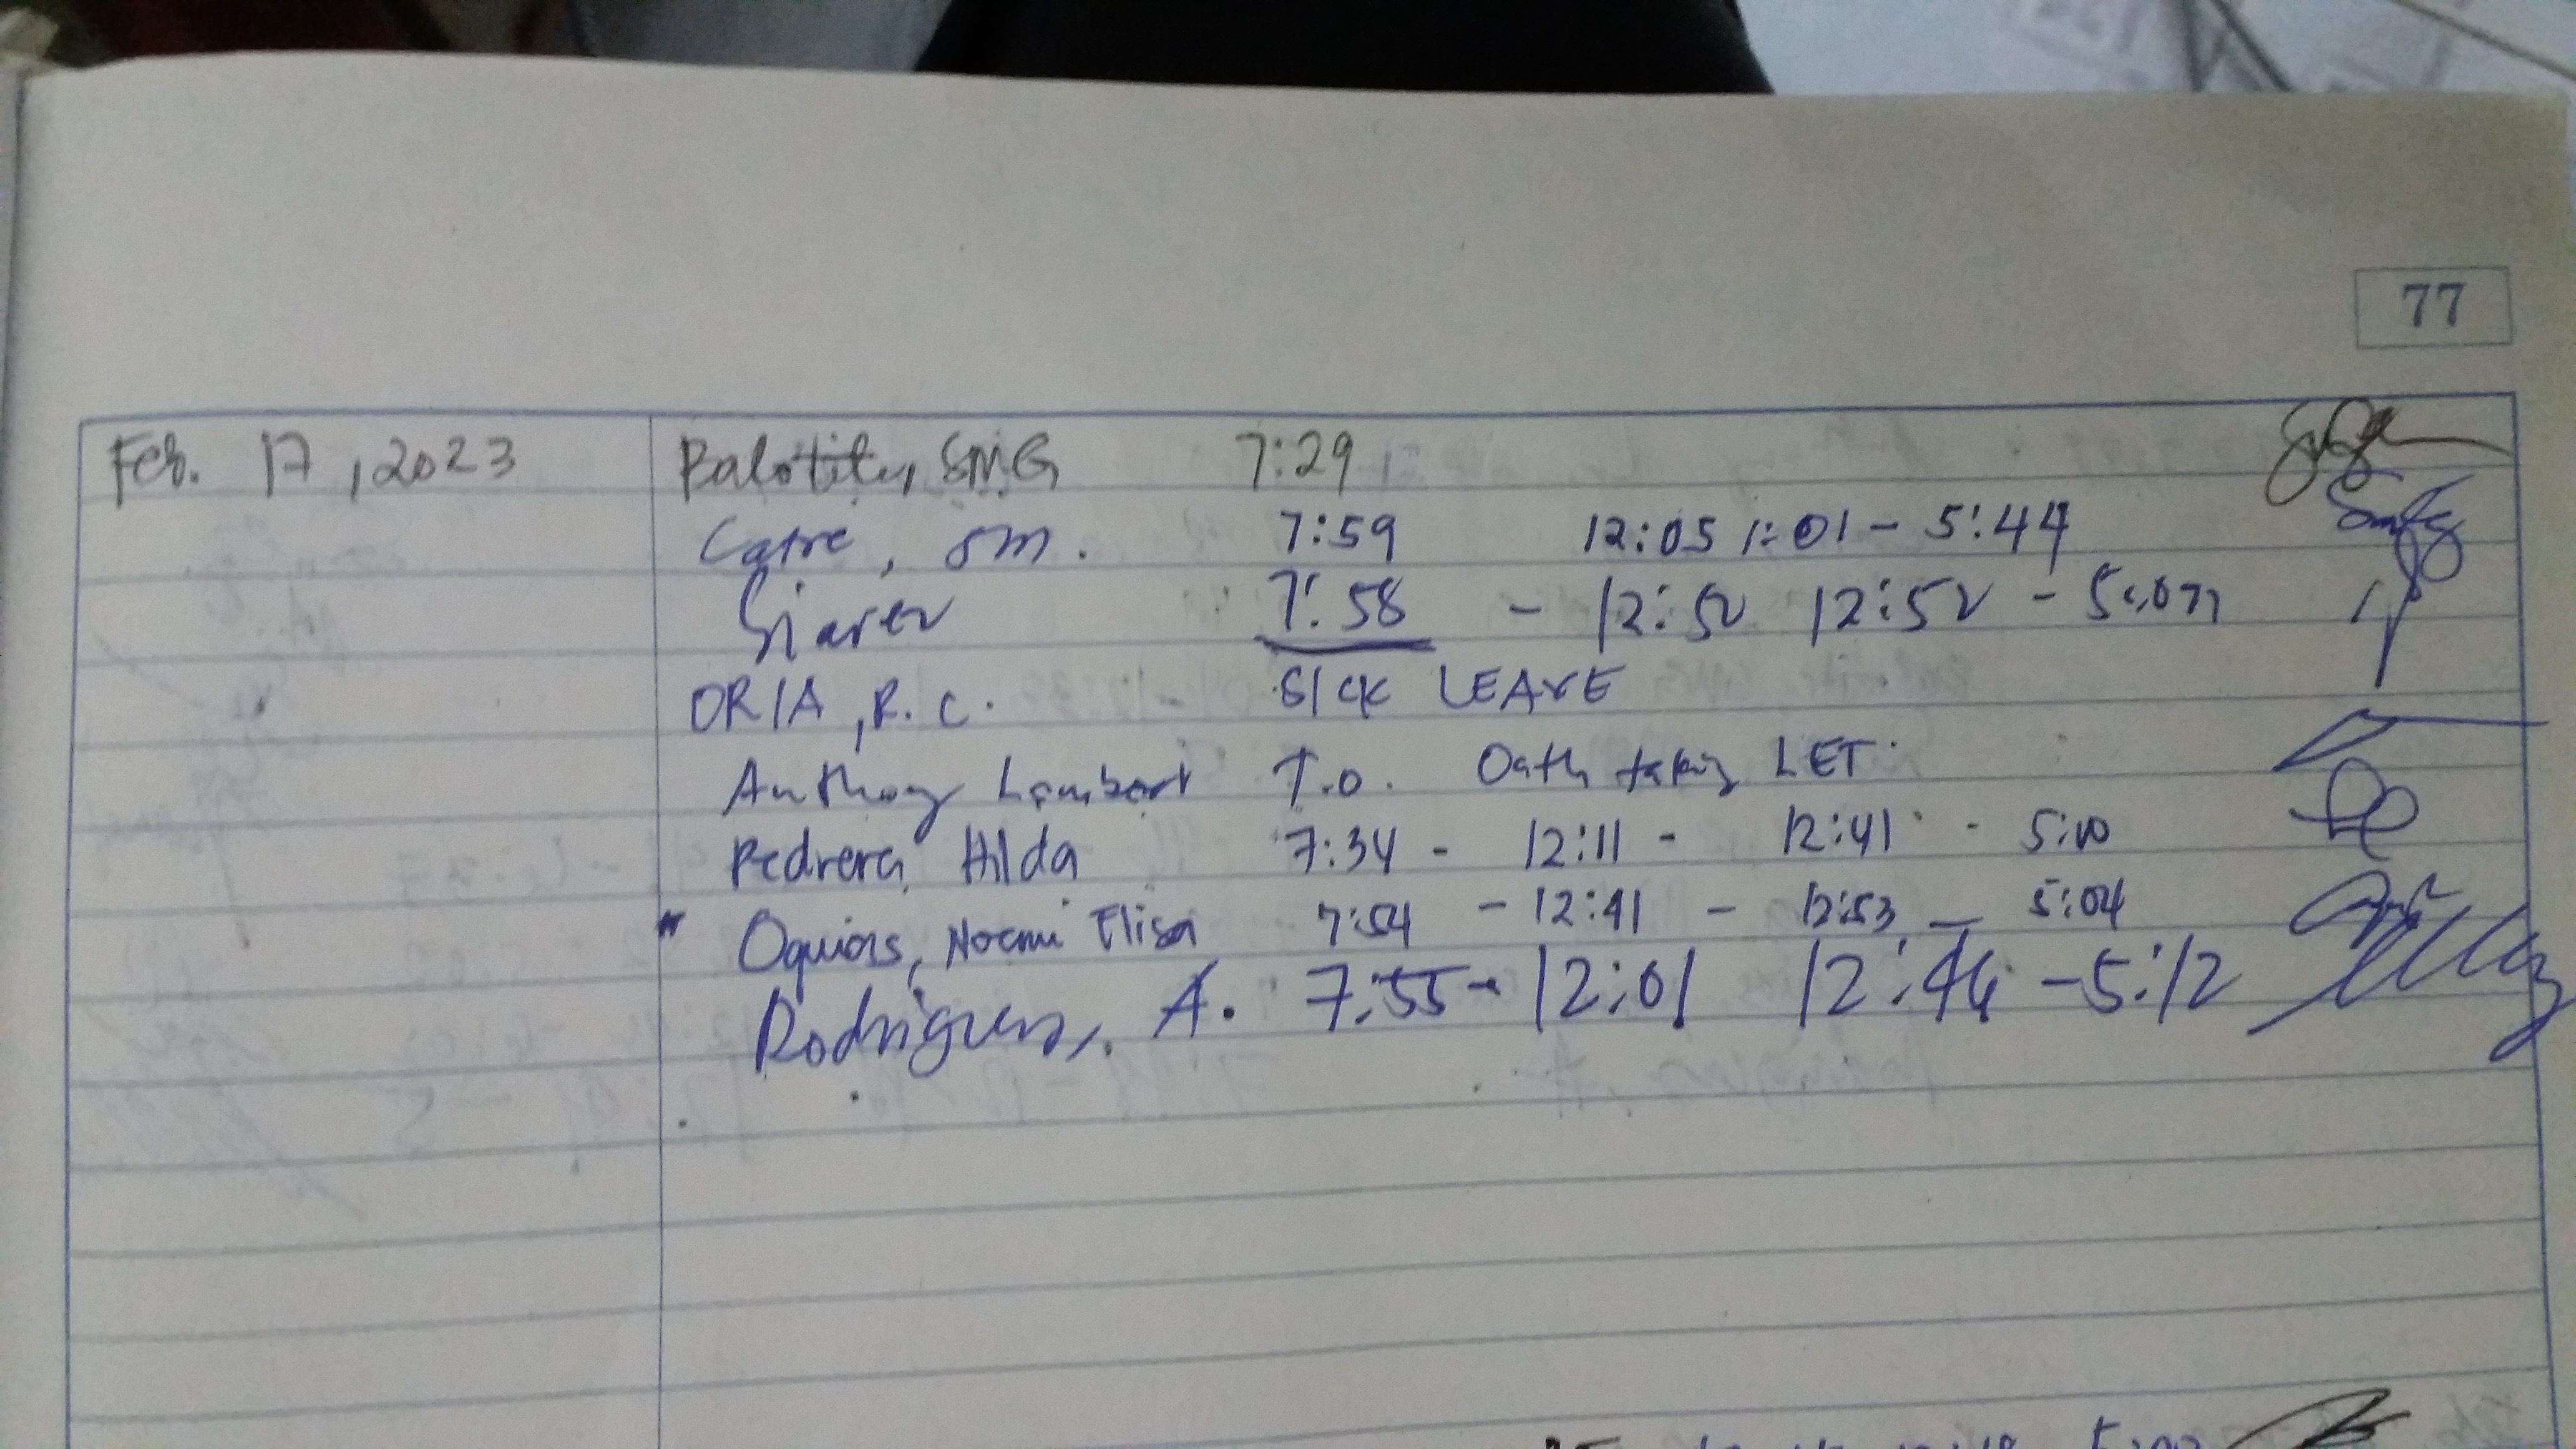 77
Feb. 17, 2023 Balotite, SMG 7:29
Catre, SM. 7:59 12:05 1:01 - 5:44
7:58 - 12:50 12:52 - 5:07
ORIA, R. C. SICK LEAVE
Anthony Lambert T.O. Oath taking LET
Pedrera, Hilda 7:34 - 12:11 - 12:41 - 5:10
* Oquias, Noemi Elisa 7:54 - 12:41 - 12:53 - 5:04
Rodriguez, A. 7:55 - 12:01 12:46 - 5:12